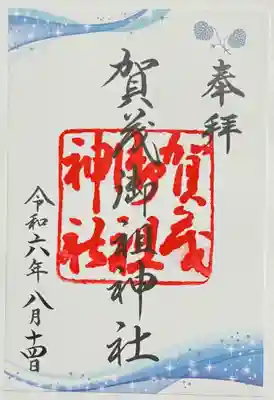 奉拝
賀茂御祖神社
賀茂
御祖
神社
令和六年八月十四日